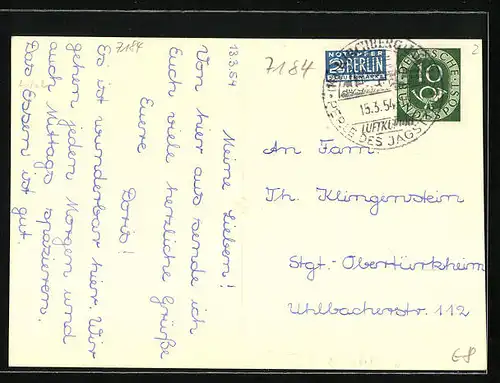 13.3.54
Meine Lieben!
Von hier aus sende ich
Euch viele herzliche Grüße
Eure
Doris!
Es ist wunderbar hier. Wir
gehen jeden Morgen und
auch Mittags spazieren.
Das Essen ist gut.
7184
7184
NOTOPFER
2 BERLIN
STEUERMARKE
DEUTSCHE
BUNDESPOST
10
15.3.54
LUFTKURORT
PERLE DES JAGST
2
An Fam.
Th. Klingenstein
Stgt.-Obertürkheim
Uhlbacherstr. 112